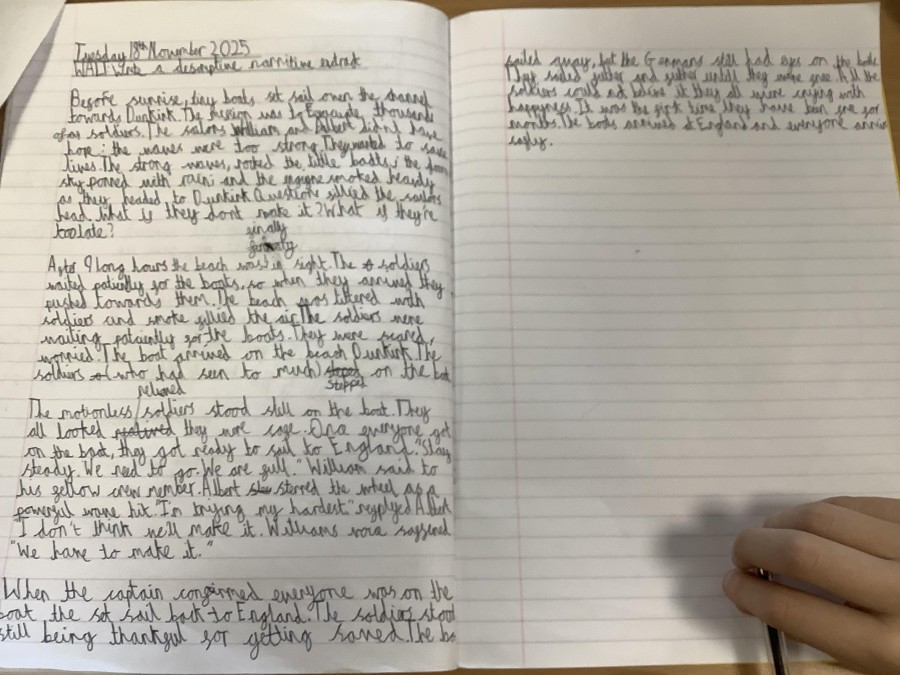 Tuesday 18th November 2025
WALT write a descriptive narritive extract
Before sunrise, tiny boats set sail over the channel
towards Dunkirk. The mission was to Evacuate, thousands
of soldiers. The sailors William and Albert didn't have
hope: the waves were too strong. They wanted to save
lives. The strong waves, rocked the little boats; the
sky poured with rain; and the engine smoked heavily
as they headed to Dunkirk. Questions filled the sailors
head. What if they dont make it? What if they're
too late?
finally
After 9 long hours the beach was in sight. The soldiers
waited patiently for the boats, so when they arrived they
pushed towards them. The beach was littered with
soldiers and smoke filled the air. The soldiers were
waiting pataintly for the boats. They were scared,
worried. The boat arrived on the beach Dunkirk. The
soldiers (who had seen to much) stoped on the boat
stepped
relieved
The motionless soldiers stood still on the boat. They
all looked they were safe. Once everyone got
on the boat, they got ready to sail to England. "Stay
steady. We need to go. We are full." William said to
his fellow crew member. Albert sterred the wheel as a
powerful wave hit. "I'm trying my hardest." Albert
"I don't think we'll make it. Williams voice
"We have to make it."
When the captain confirmed everyone was on the
boat the set sail back to England. The soldiers stood
still being thankful for getting saved. The bo
sailed away, but the Germans still had eyes on the boats
They sailed futher and futher untill they were gone. All the
soldiers could not belive it they all were crying with
happyness. It was the first time they have been safe for
months. The boats arrived at England and everyone arrive
safly.